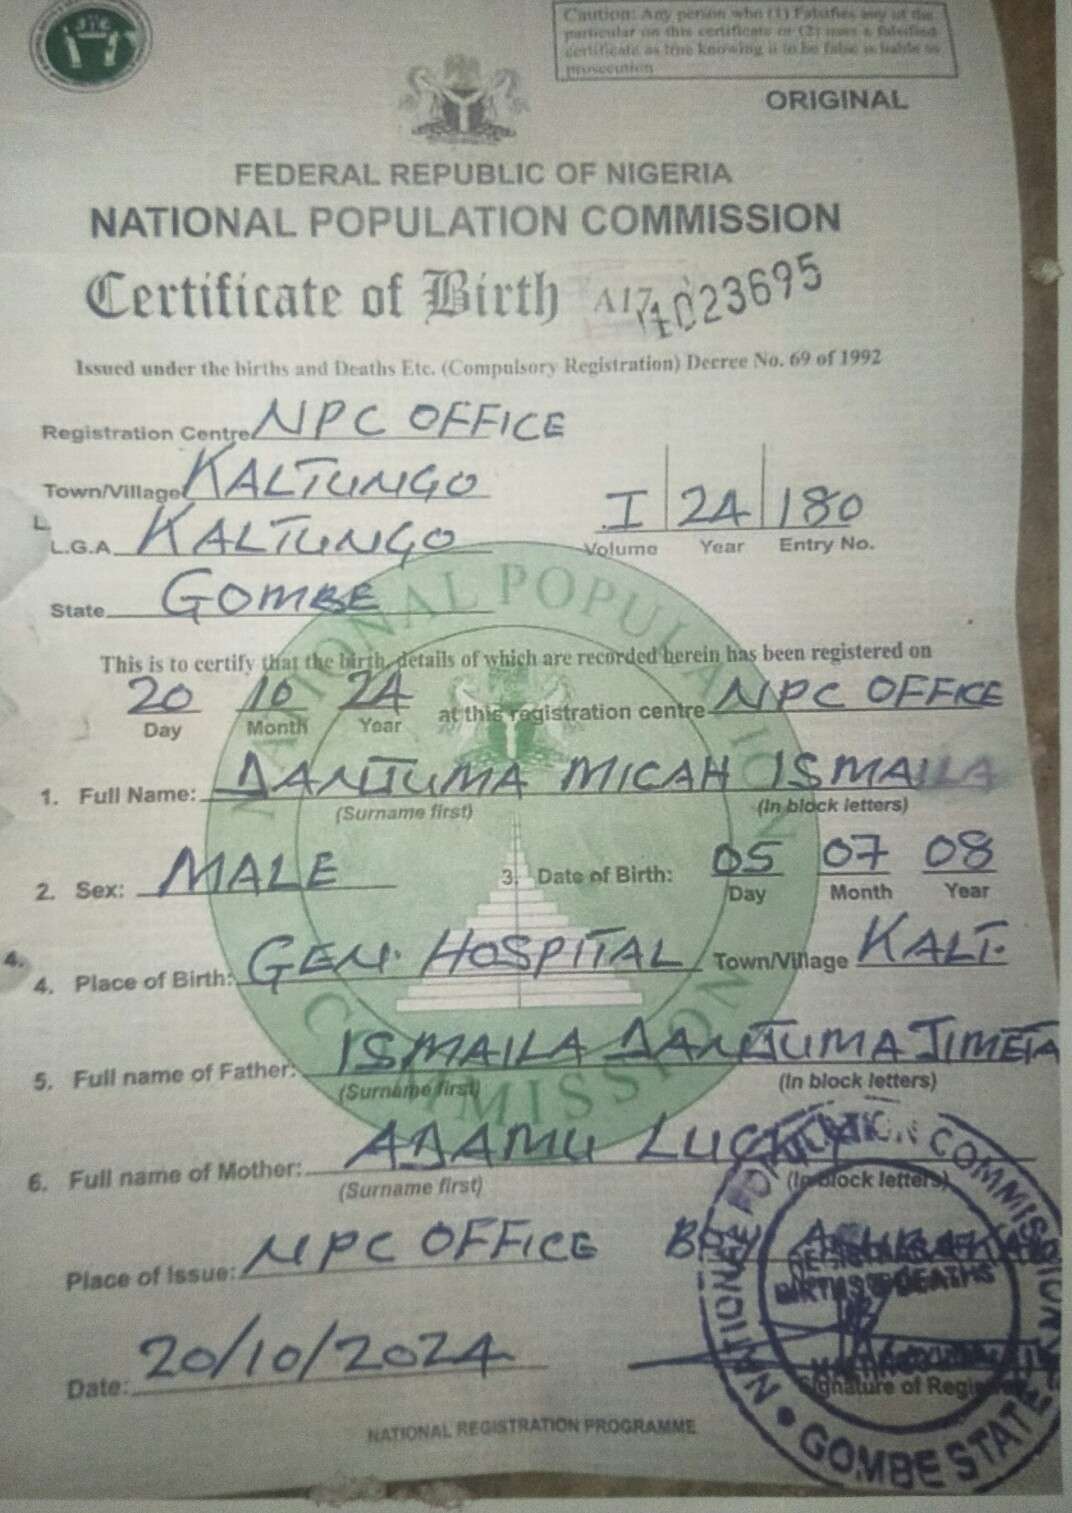 Caution: Any person who (1) Falsifies any of the
particular on this certificate or (2) uses a falsified
certificate as true knowing it to be false is liable to
prosecution
ORIGINAL
FEDERAL REPUBLIC OF NIGERIA
NATIONAL POPULATION COMMISSION
Certificate of Birth A17 1023695
Issued under the births and Deaths Etc. (Compulsory Registration) Decree No. 69 of 1992
Registration Centre NPC OFFICE
Town/Village KALTUNGO
L.G.A. KALTUNGO
I 24 180
Volume Year Entry No.
State GOMBE
This is to certify that the birth, details of which are recorded herein has been registered on
20 10 24 at this registration centre NPC OFFICE
Day Month Year
1. Full Name: DANJUMA MICAH ISMAILA
(Surname first) (In block letters)
2. Sex: MALE 3. Date of Birth: 05 07 08
Day Month Year
4. Place of Birth: GEN. HOSPITAL Town/Village KALT.
5. Full name of Father: ISMAILA DANJUMA JIMETA
(Surname first) (In block letters)
6. Full name of Mother: ADAMU LUCKY
(Surname first) (In block letters)
Place of Issue: NPC OFFICE
Date: 20/10/2024
Signature of Registrar
NATIONAL REGISTRATION PROGRAMME
NATIONAL POPULATION COMMISSION
BIRTHS & DEATHS
GOMBE STATE